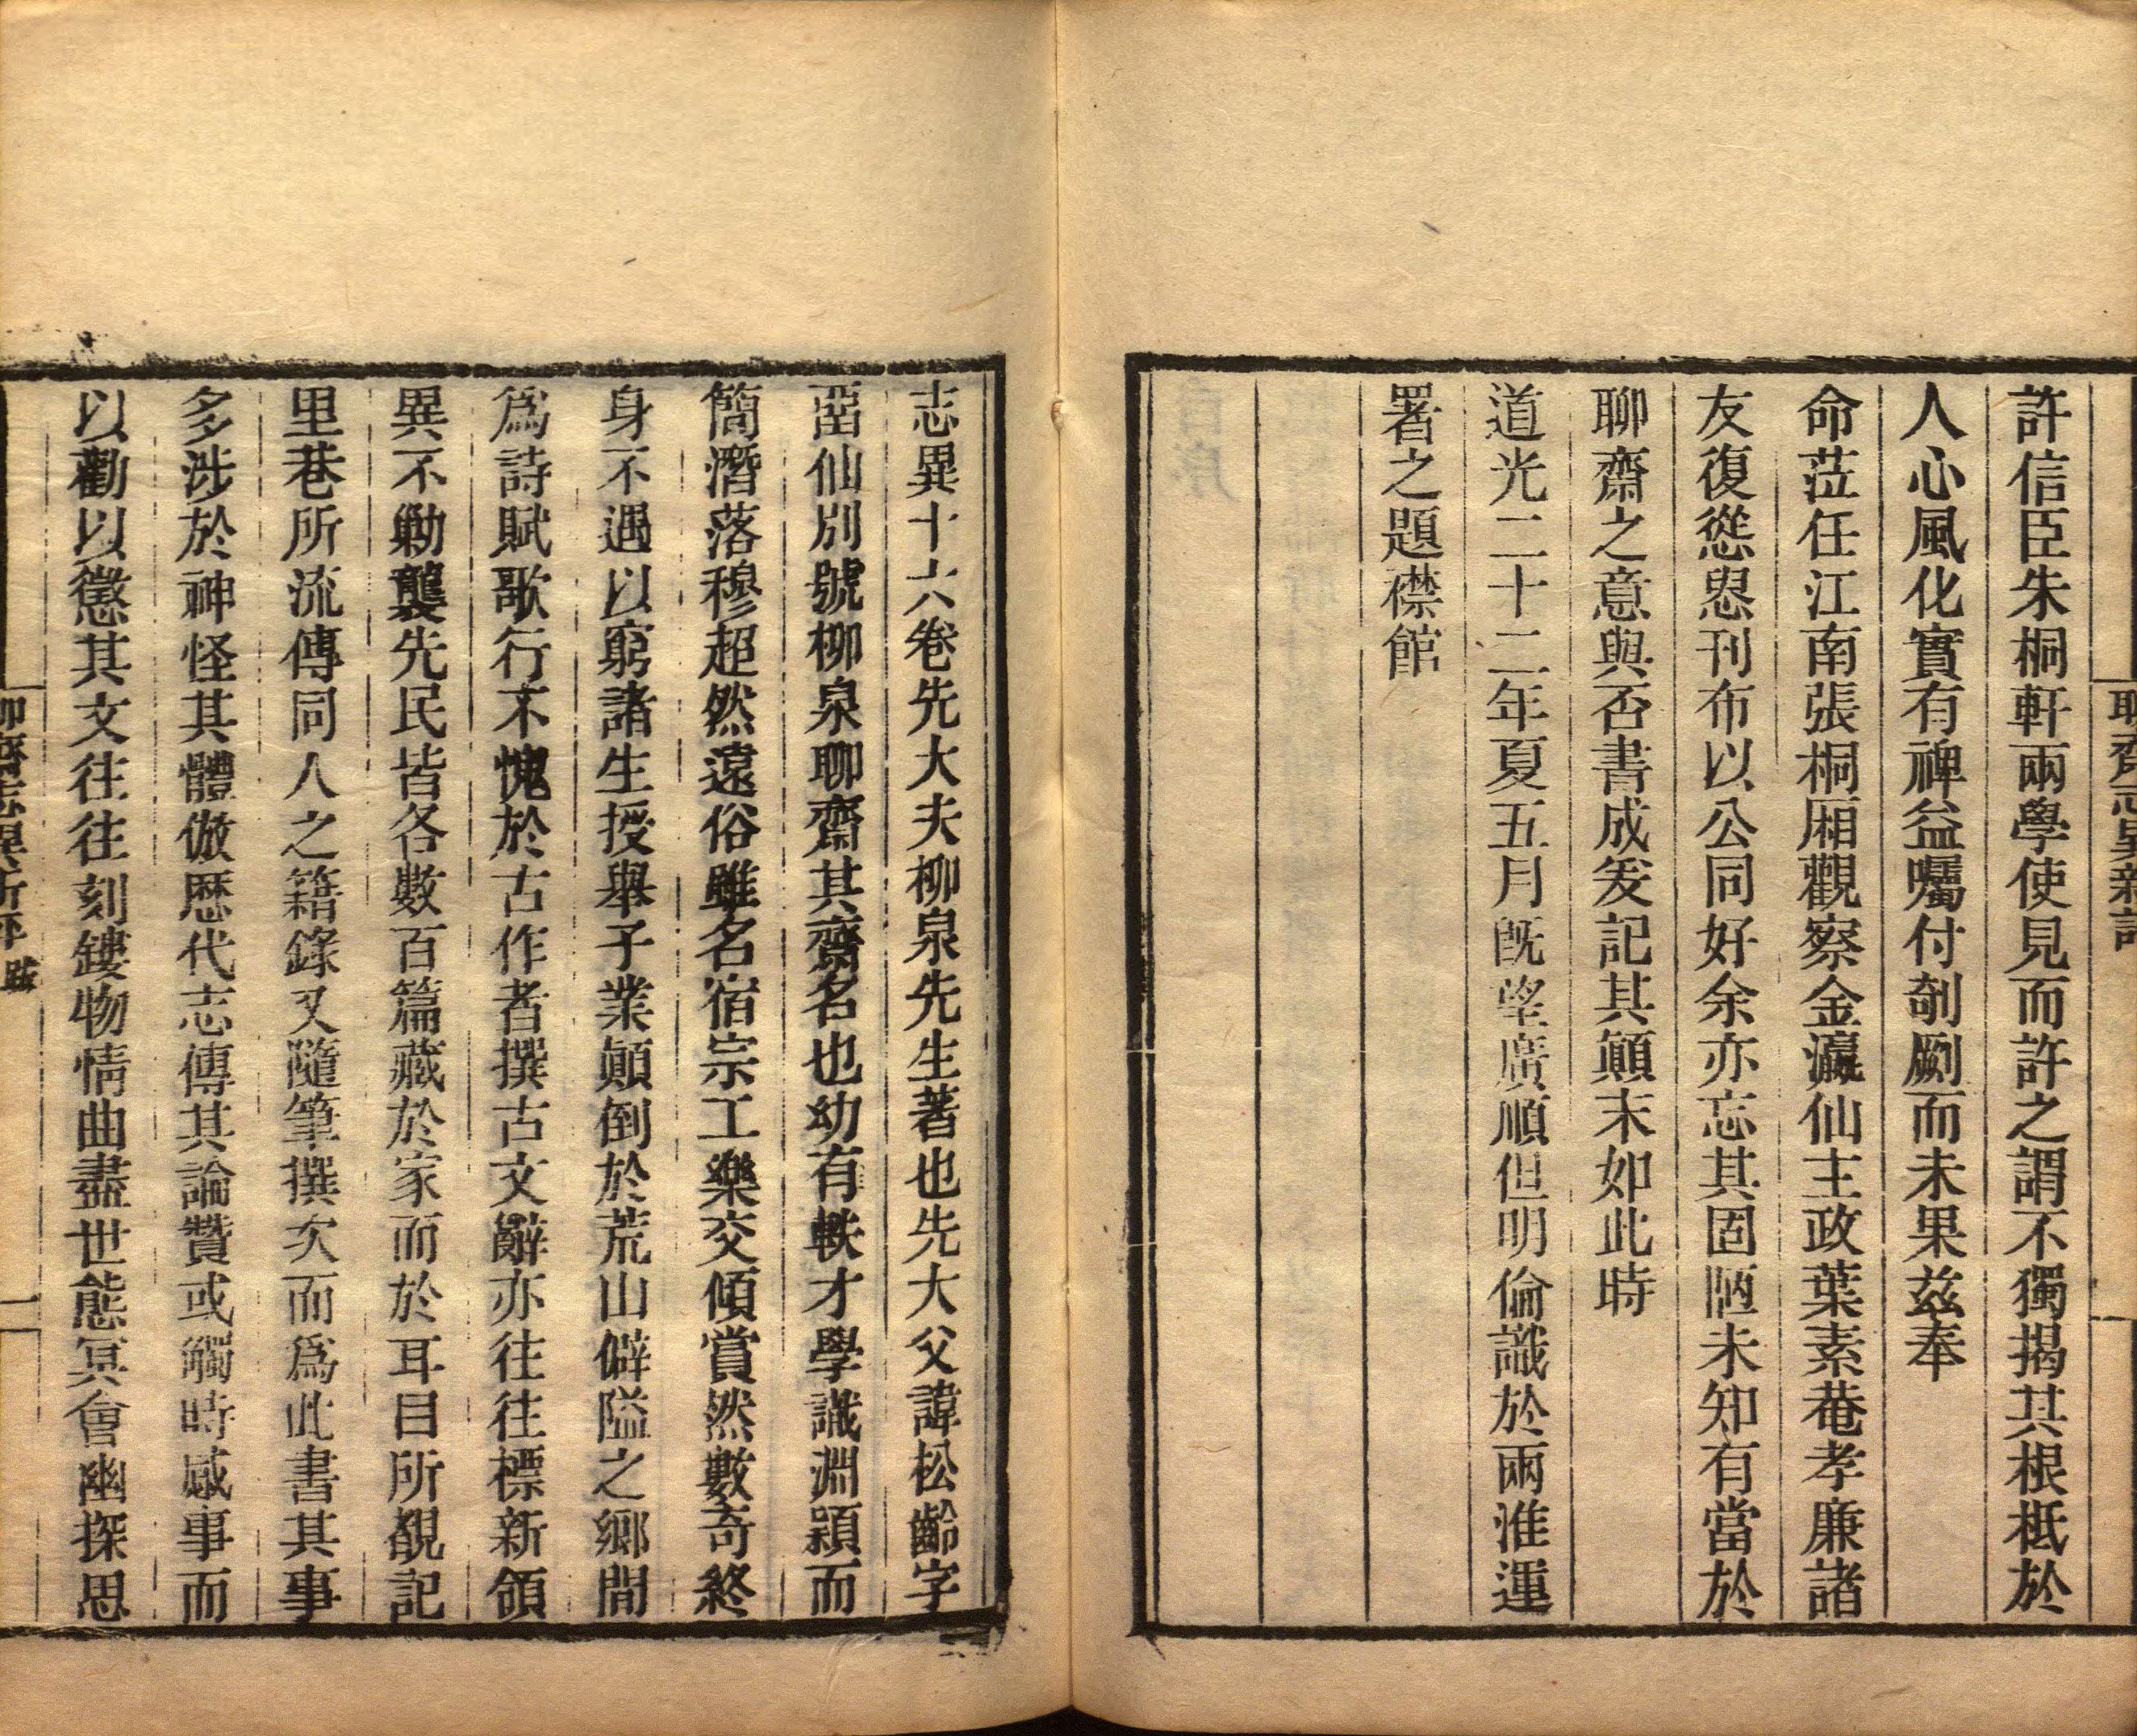 聊齋志異新評
許信臣朱桐軒兩學使見而許之謂不獨揭其根柢於
人心風化實有裨益囑付剞劂而未果茲奉
命莅任江南張桐厢觀察金瀛仙主政葉素菴孝廉諸
友復慫恿刊布以公同好余亦忘其固陋未知有當於
聊齋之意與否書成爰記其顛末如此時
道光二十二年夏五月既望廣順但明倫識於兩淮運
署之題襟館
志異十六卷先大夫柳泉先生著也先大父諱松齡字
畱仙別號柳泉聊齋其齋名也幼有軼才學識淵穎而
簡潛落穆超然遠俗雖名宿宗工樂交傾賞然數奇終
身不遇以窮諸生授舉子業顛倒於荒山僻隘之鄉間
爲詩賦歌行不愧於古作者撰古文辭亦往往標新領
異不勦襲先民皆各數百篇藏於家而於耳目所覩記
里巷所流傳同人之籍錄又隨筆撰次而爲此書其事
多涉於神怪其體倣歷代志傳其論贊或觸時感事而
以勸以懲其文往往刻鏤物情曲盡世態冥會幽探思
聊齋志異新評 跋 一